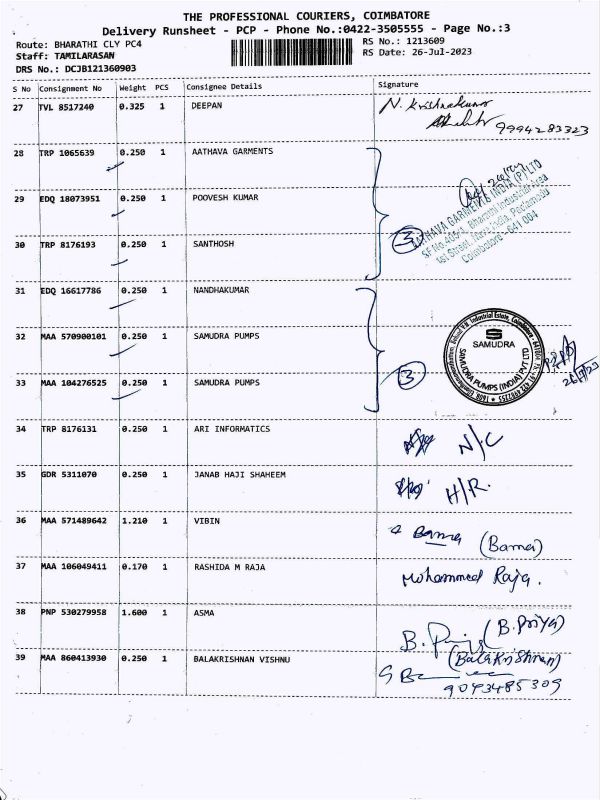 THE PROFESSIONAL COURIERS, COIMBATORE
Delivery Runsheet - PCP - Phone No.:0422-3505555 - Page No.:3
Route: BHARATHI CLY PC4
RS No.: 1213609
Staff: TAMILARASAN
RS Date: 26-Jul-2023
DRS No.: DCJB121360903
S No Consignment No Weight PCS Consignee Details Signature
27 TVL 8517240 0.325 1 DEEPAN N. Krishnakumar
9994283323
28 TRP 1065639 0.250 1 AATHAVA GARMENTS
29 EDQ 18073951 0.250 1 POOVESH KUMAR
AATHAVA GARMENTS INDIA (P) LTD
SF No.405/1, Bharathi Industrial Area
1st Street, Peelamedu
Coimbatore - 641 004
3
30 TRP 8176193 0.250 1 SANTHOSH
31 EDQ 16617786 0.250 1 NANDHAKUMAR
32 MAA 570900101 0.250 1 SAMUDRA PUMPS
SAMUDRA
SAMUDRA PUMPS (INDIA) PVT LTD
26/7/23
3
33 MAA 104276525 0.250 1 SAMUDRA PUMPS
34 TRP 8176131 0.250 1 ARI INFORMATICS N/C
35 GDR 5311070 0.250 1 JANAB HAJI SHAHEEM H/R.
36 MAA 571489642 1.210 1 VIBIN Bama (Bama)
37 MAA 106049411 0.170 1 RASHIDA M RAJA Mohammed Raja.
38 PNP 530279958 1.600 1 ASMA B. Priya (B.Priya)
39 MAA 860413930 0.250 1 BALAKRISHNAN VISHNU (Balakrishnan)
9043485309